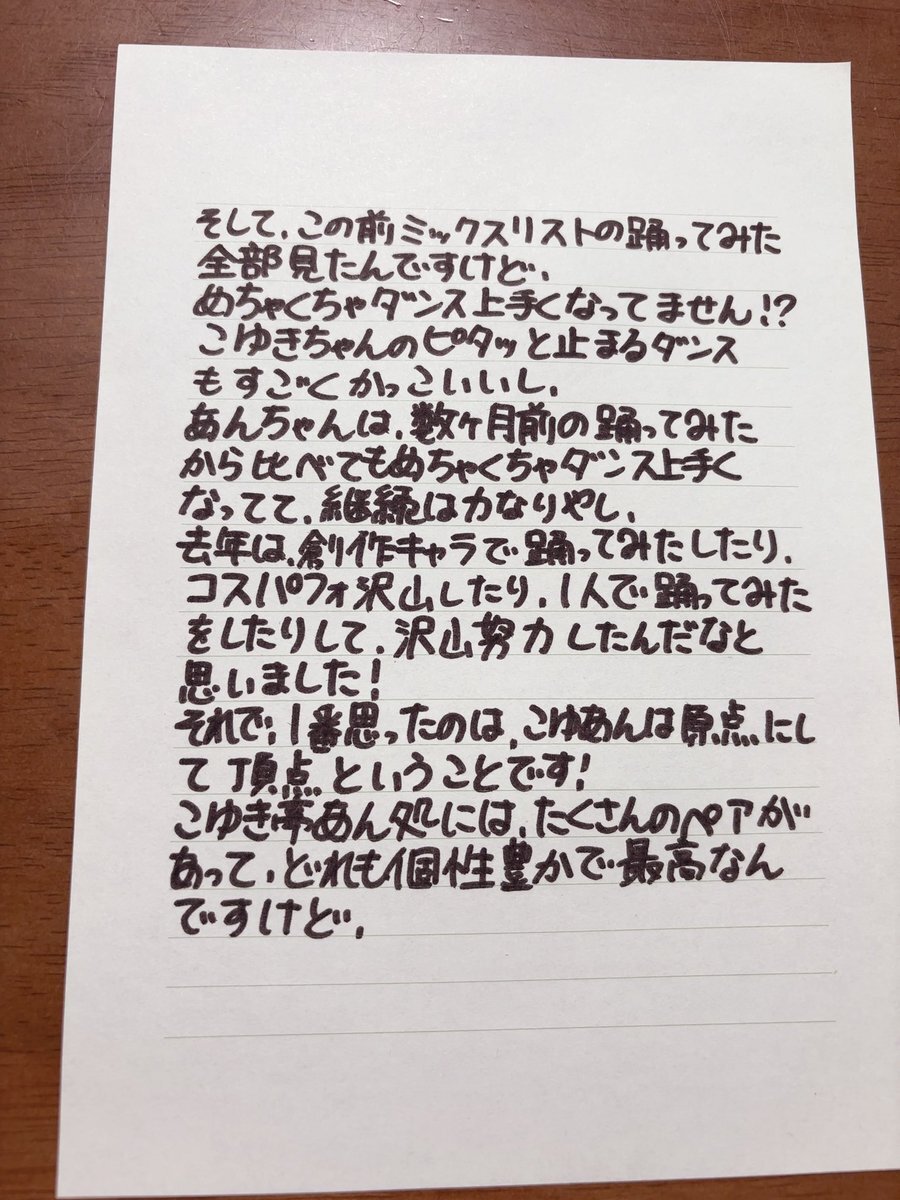 そして、この前ミックスリストの踊ってみた
全部見たんですけど、
めちゃくちゃダンス上手くなってません!?
こゆきちゃんのピタッと止まるダンス
もすごくかっこいいし、
あんちゃんは、数ヶ月前の踊ってみた
から比べてもめちゃくちゃダンス上手く
なってて、継続は力なりやし、
去年は、創作キャラで踊ってみたしたり、
コスパフォ沢山したり、1人で踊ってみた
をしたりして、沢山努力したんだなと
思いました!
それで、1番思ったのは、こゆあんは原点にし
て頂点ということです!
こゆき亭あん処には、たくさんのペアが
あって、どれも個性豊かで最高なん
ですけど、